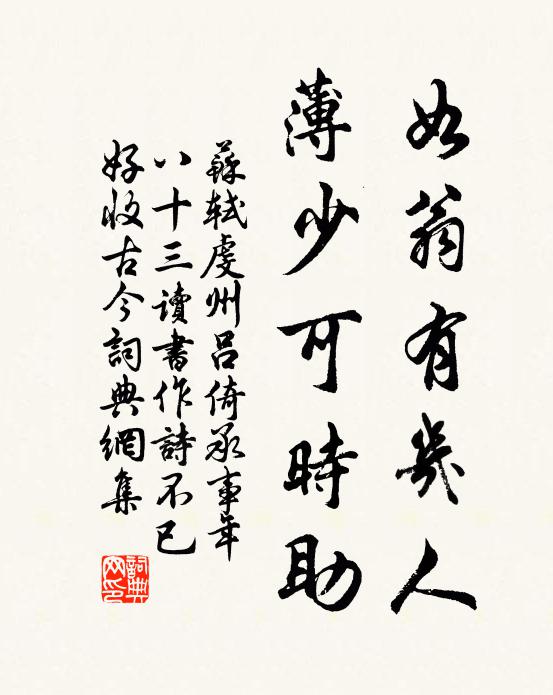 如翁有幾人
薄少可時助
蘇軾虔州呂倚承事年
八十三讀書作詩不已
好收古今詞典網集
詞典
网印